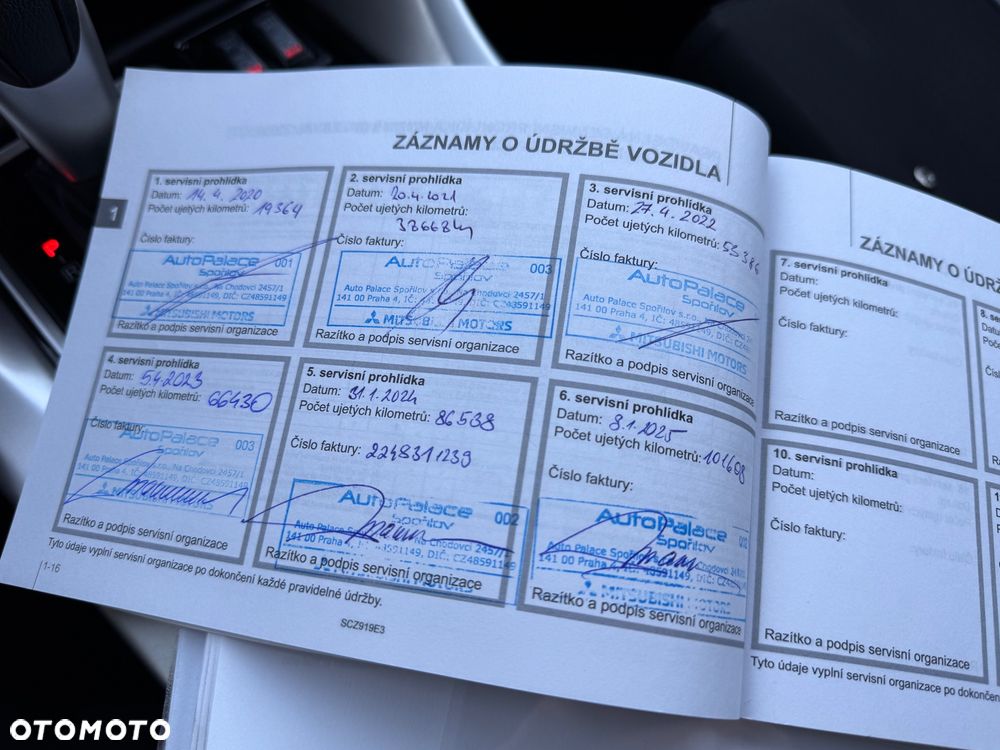 ZÁZNAMY O ÚDRŽBĚ VOZIDLA
1
1. servisní prohlídka
Datum: 14.4. 2020
Počet ujetých kilometrů: 19364
Číslo faktury:
AutoPalace 001
Spořilov
Auto Palace Spořilov s.r.o., Na Chodovci 2457/1
141 00 Praha 4, IČ: 48591149, DIČ: CZ48591149
Razítko a podpis servisní organizace
2. servisní prohlídka
Datum: 20.4.2021
Počet ujetých kilometrů:
Číslo faktury:
003
Auto Palace Spořilov s.r.o., Na Chodovci 2457/1
141 00 Praha 4, IČ: DIČ: CZ48591149
MITSUBISHI MOTORS
Razítko a podpis servisní organizace
3. servisní prohlídka
Datum: 27.4.2022
Počet ujetých kilometrů: 55386
Číslo faktury:
AutoPalace
Spořilov
Auto Palace Spořilov s.r.o., Na Chodovci 2457/1
141 00 Praha 4, IČ: 48591149, DIČ:
MITSUBISHI MOTORS
Razítko a podpis servisní organizace
4. servisní prohlídka
Datum: 5.4.2023
Počet ujetých kilometrů: 66430
Číslo faktury:
AutoPalace 003
Spořilov
Na Chodovci 2457/1
141 00 Praha 4, DIČ: CZ48591149
Razítko a podpis servisní organizace
5. servisní prohlídka
Datum: 31.1.2024
Počet ujetých kilometrů: 86538
Číslo faktury: 224831239
AutoPalace 002
Spořilov
Auto Palace Na Chodovci 2457/1
141 00 Praha 4, 48591149, DIČ: CZ48591149
Razítko a podpis servisní organizace
6. servisní prohlídka
Datum: 8.1.2025
Počet ujetých kilometrů:
Číslo faktury:
AutoPalace 002
Spořilov
Auto Palace Na Chodovci
141 00 Praha 4, 48591149, DIČ:
MITSUBISHI MOTORS
Razítko a podpis servisní organizace
Tyto údaje vyplní servisní organizace po dokončení každé pravidelné údržby.
1-16
SCZ919E3
ZÁZNAMY O ÚDR
7. servisní prohlídka
Datum:
Počet ujetých kilometrů:
Číslo faktury:
Razítko a podpis servisní organizace
10. servisní prohlídka
Datum:
Počet ujetých kilometrů:
Číslo faktury:
Razítko a podpis servisní organizace
Tyto údaje vyplní servisní organizace po dokončen
OTOMOTO